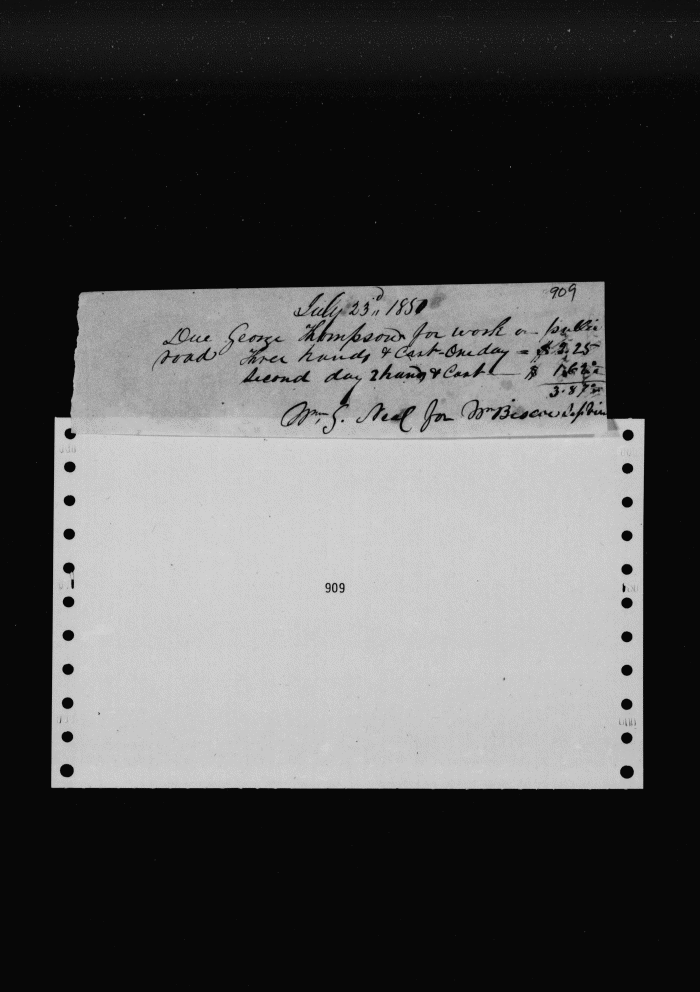 909
July 23d, 1850
Due George Thompson for work on public
road Three hands & Cart One day = $2.25
Second day 2 hands & Cart — $ 1.62½
3.87½
Wm. G. Neal for Wm
909